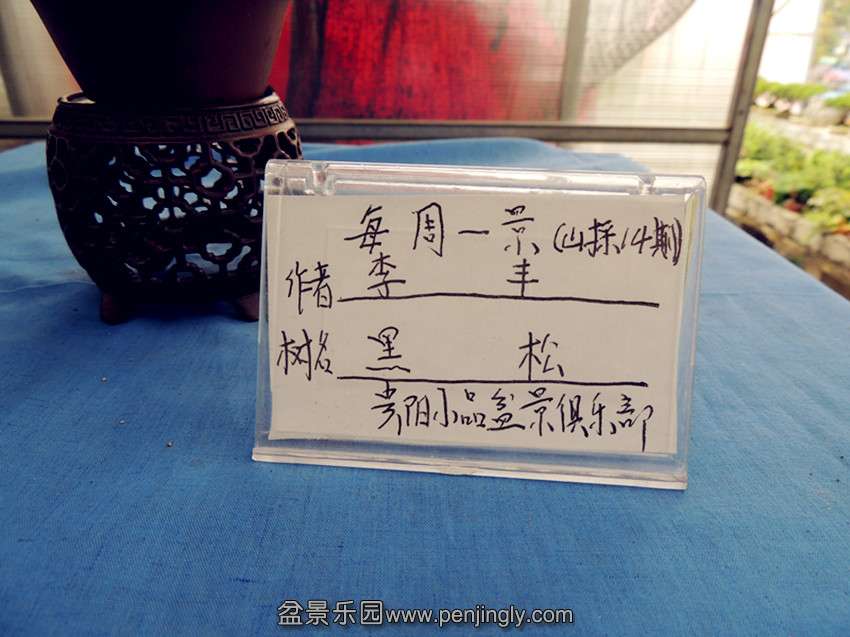 每周一景(山採14期)
作者 李丰
树名 黑松
贵阳小品盆景俱乐部
盆景乐园www.penjingly.com